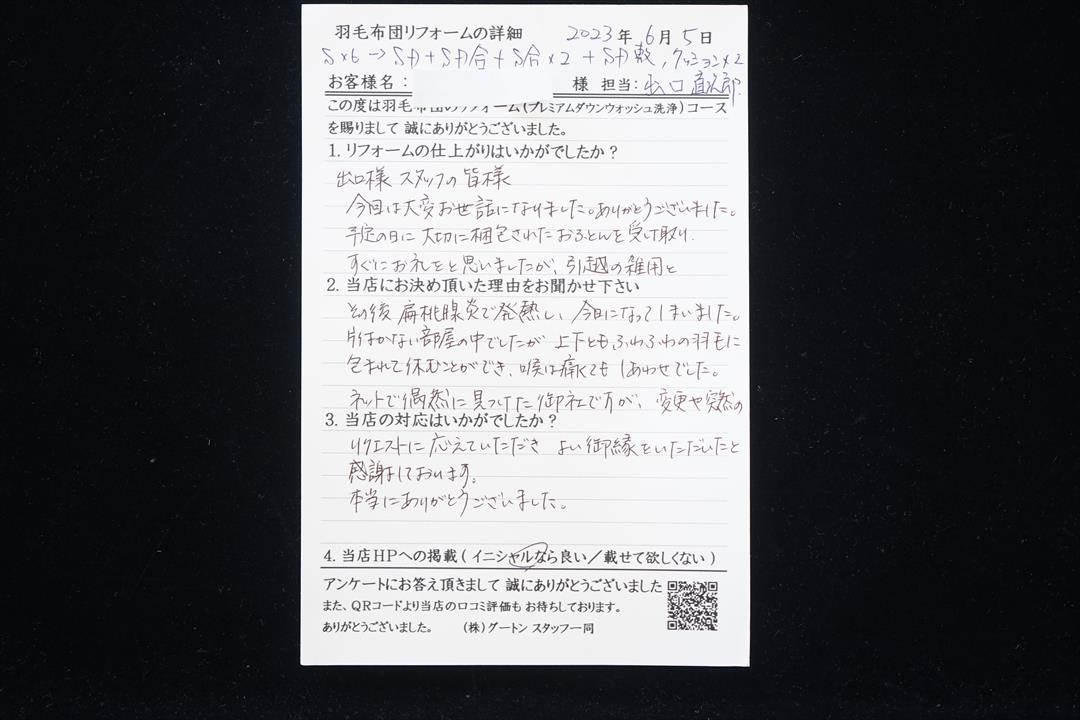 羽毛布団リフォームの詳細 2023年 6月 5日
S×6 → SD + SD合 + S合×2 + SD敷, クッション×2
お客様名： 様 担当：出口直次郎
この度は羽毛布団のリフォーム（プレミアムダウンウォッシュ洗浄）コース
を賜りまして 誠にありがとうございました。
1. リフォームの仕上がりはいかがでしたか？
出口様 スタッフの皆様
今回は大変お世話になりました。ありがとうございました。
予定の日に大切に梱包されたおふとんを受け取り、
すぐにお礼をと思いましたが、引越の雑用と
2. 当店にお決め頂いた理由をお聞かせ下さい
その後 扁桃腺炎で発熱し、今日になってしまいました。
片付かない部屋の中でしたが 上下ともふわふわの羽毛に
包まれて休むことができ、喉は痛くても しあわせでした。
ネットで偶然に見つけた御社ですが、変更や突然の
3. 当店の対応はいかがでしたか？
リクエストに応えていただき よい御縁をいただいたと
感謝しております。
本当にありがとうございました。
4. 当店HPへの掲載（イニシャルなら良い／載せて欲しくない）
アンケートにお答え頂きまして 誠にありがとうございました
また、QRコードより当店の口コミ評価も お待ちしております。
ありがとうございました。 （株）グートン スタッフ一同